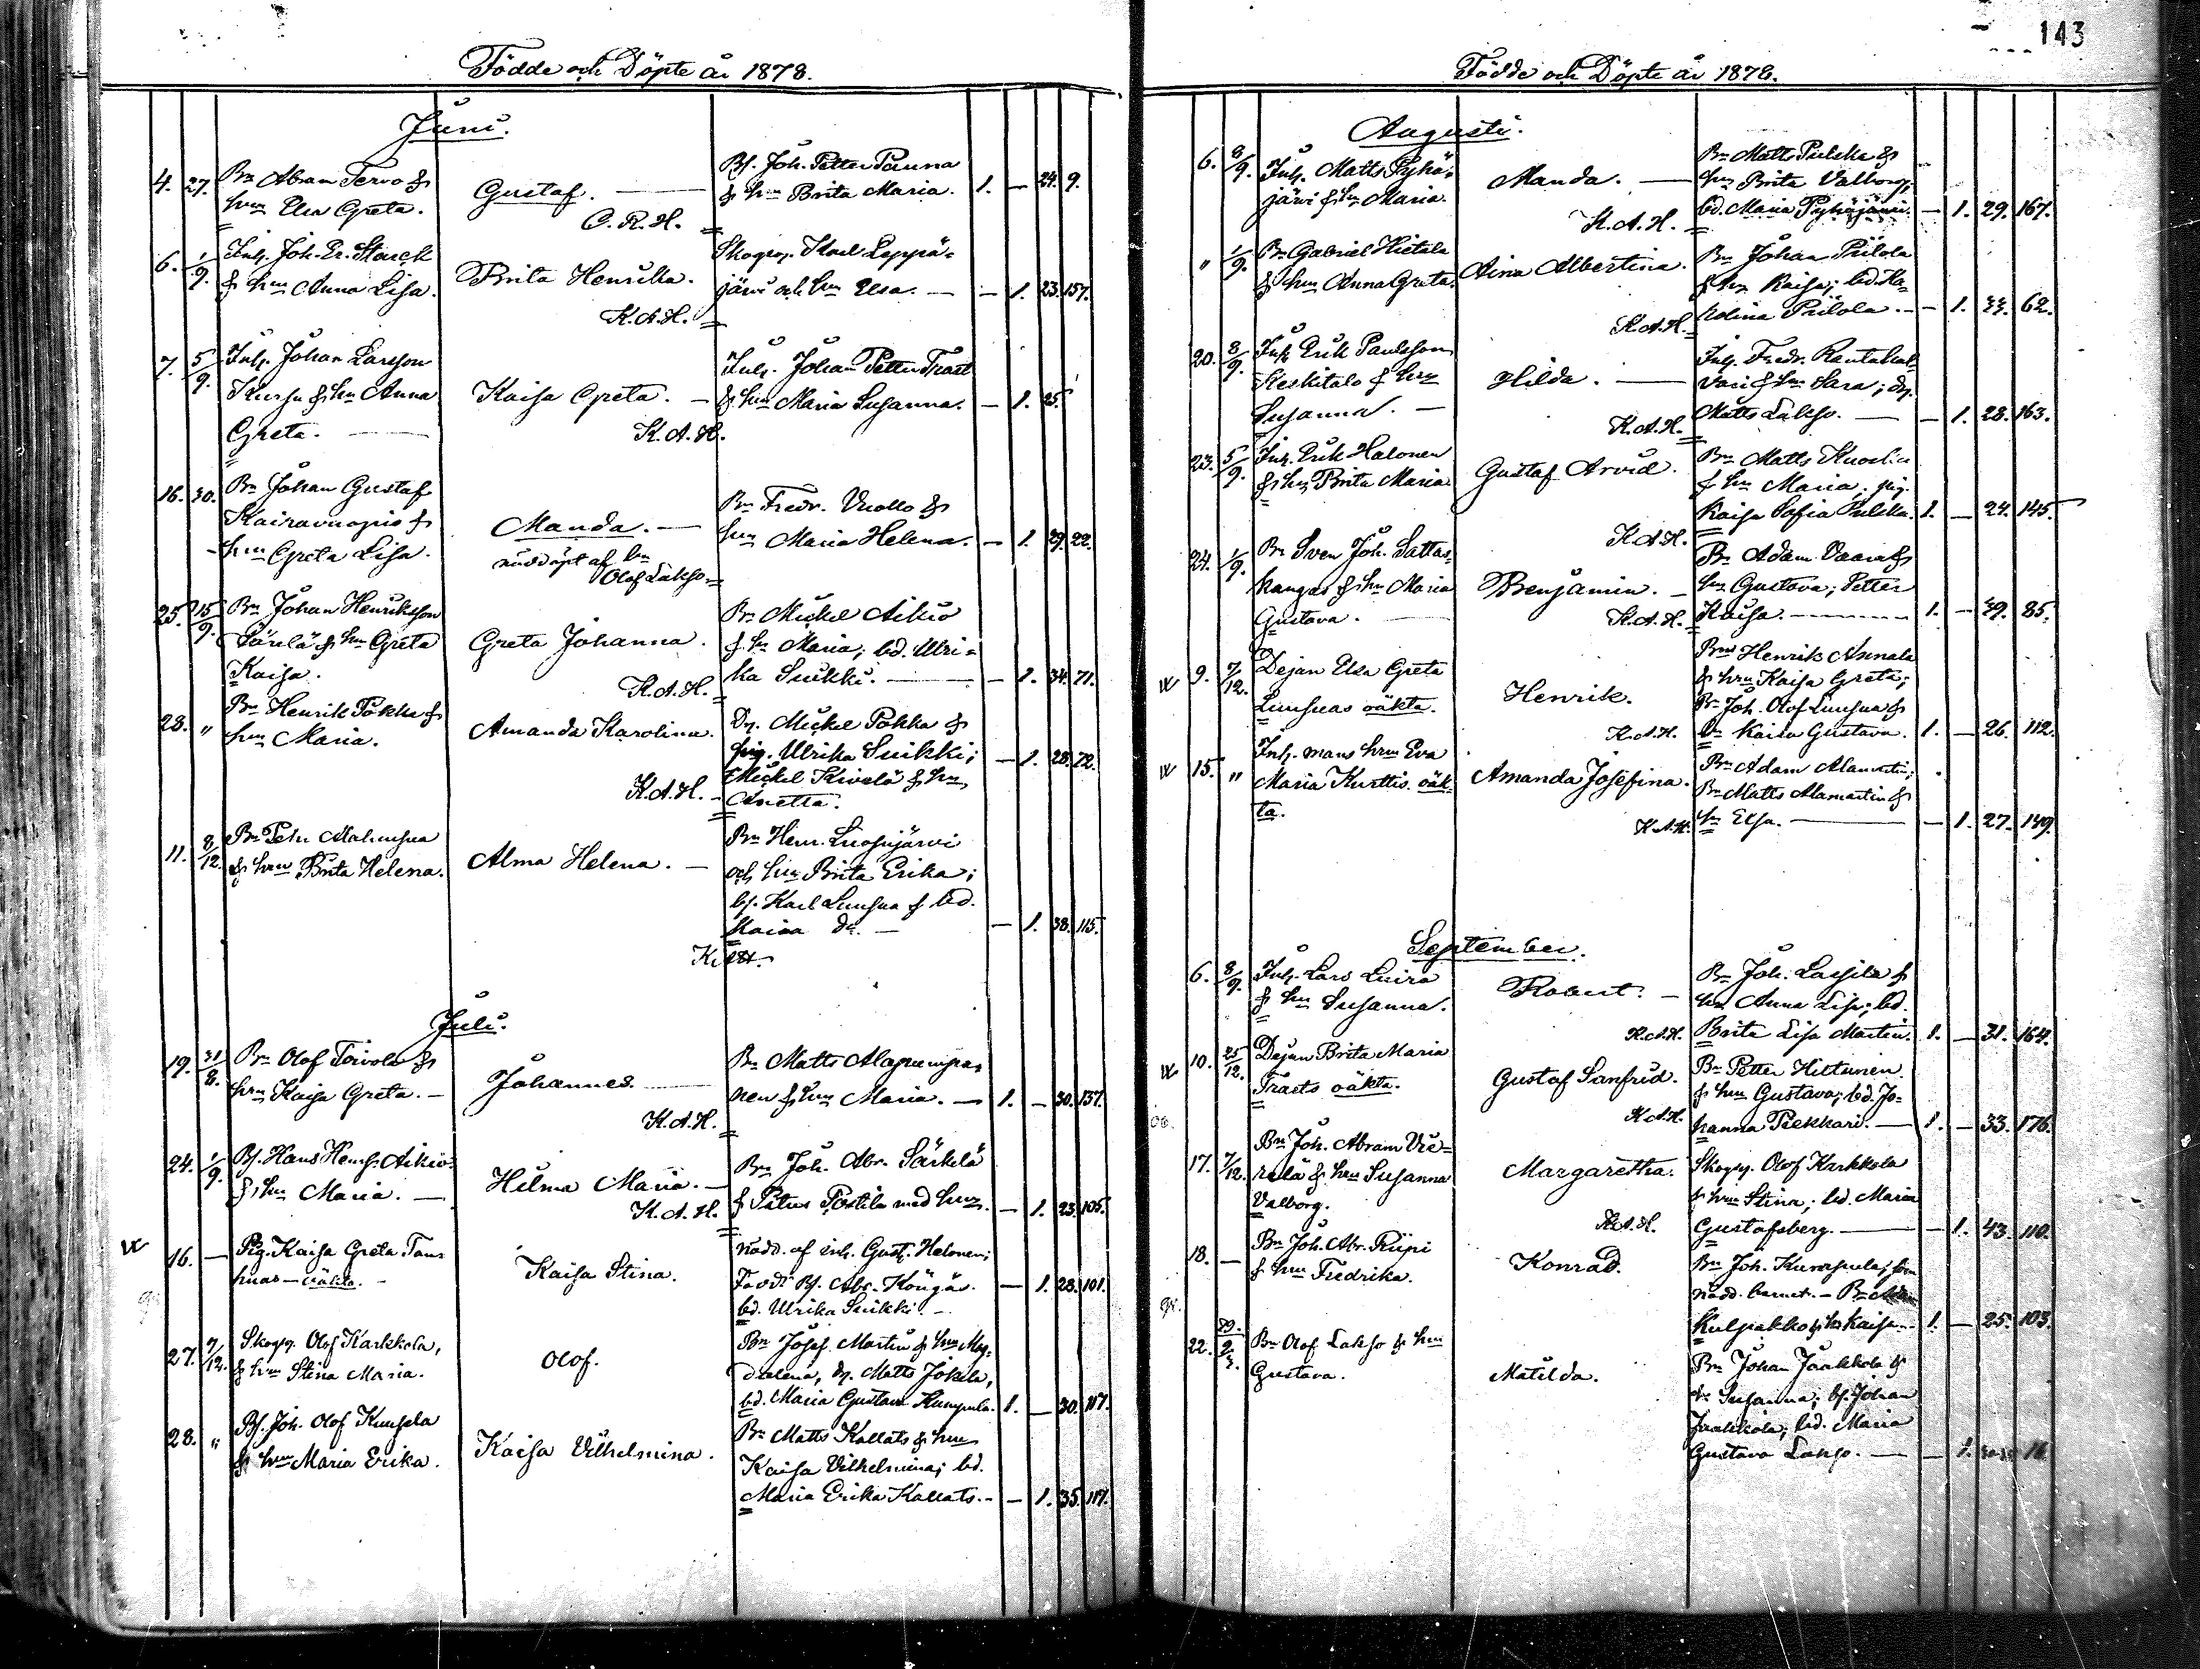 Födde och Döpte år 1878.
Juni.
4. 27. Bn Abram Tervo &
hn Elsa Greta.
Gustaf. —
C. R. H.
Bs. Joh. Petter Panna
& hn Brita Maria. 1. — 24. 9.
6. 1/9. Inh. Joh. Er. Starck
& hn Anna Lisa.
Brita Henrika.
K. A. H.
Skogv. Karl Leppä-
järvi och hn Elsa. — — 1. 23. 157.
7. 5/9. Inh. Johan Larsson
& hn Anna
Greta. —
Kaisa Greta. —
K. A. H.
Inh. Johan Petter Trast
& hn Maria Susanna. — 1. 25.
16. 30. Bn Johan Gustaf
Kairavuopio &
hn Greta Lisa.
Manda. —
nöddöpt af bn
Olof Lakso.
Bn Fredr. Vuollo &
hn Maria Helena. — 1. 29. 22.
25. 15/9. Bn Johan Henriksson
Särelä & hn Greta
Kaisa.
Greta Johanna.
K. A. H.
Bn Mickel Aikio
& hn Maria; bd. Ulri-
ka Suikki. — — 1. 34. 71.
28. " Bn Henrik Pokka &
hn Maria.
Amanda Karolina.
K. A. H.
Dr. Mickel Pokka &
pig. Ulrika Suikki; — 1. 28. 72.
Mickel Kivelä & hn
Anetta.
11. 8/12. Bn Petr.
& hn Brita Helena.
Alma Helena. —
Bn Henr. Luosujärvi
och hn Brita Erika;
bs. Karl Luusua & bd.
Kaisa do. — — 1. 38. 115.
Juli.
19. 31/8. Bn Olof Toivola &
hn Kaisa Greta. —
Johannes. —
K. A. H.
Bn Matts Alapeumpa-
nen & hn Maria. — 1. — 30. 137.
24. 1/9. Bs. Hans Henr. Aikio
& hn Maria. —
Hilma Maria. —
K. A. H.
Bn Joh. Abr. Särkelä
& Petrus Postila med hn. — 1. 23. 105.
16. — Pig. Kaisa Greta Tan-
huas — oäkta. —
Kaisa Stina.
nödd. af inh. Gust. Halonen;
Bs. Abr. Köngäs. — 1. 28. 101.
bd. Ulrika Suikki. —
27. 7/12. Skogv. Olof Karkkola,
& hn Stina Maria.
Olof.
Bn Josef Martin & hn Mag-
dalena, dr. Matts Jokela,
bd. Maria Gustava Kumpula. 1. — 30. 117.
28. " Bs. Joh. Olof Kumpula
& hn Maria Erika.
Kaisa Vilhelmina.
Bn Matts Kallats & hn
Kaisa Vilhelmina; bd.
Maria Erika Kallats. — — 1. 35. 117.
143
Födde och Döpte år 1878.
Augusti.
6. 8/9. Inh. Matts Pyhä-
järvi & hn Maria.
Manda. —
K. A. H.
Bn Matts Pulska &
hn Brita Valborg,
bd. Maria Pyhäjärvi. — 1. 29. 167.
" 1/9. Bn Gabriel Hietala
& hn Anna Greta.
Aina Albertina.
K. A. H.
Bn Johan Piilola
& hn Kaisa; bd. Ka-
rolina Piilola. — — 1. 33. 62.
20. 8/9. Inh. Erik Paulsson
Keskitalo & hn
Susanna. —
Hilda. —
K. A. H.
Inh. Fredr.
& hn Sara; dr.
Matts Lakso. — — 1. 28. 163.
23. 5/9. Inh. Erik Halonen
& hn Brita Maria
Gustaf Arvid.
K. A. H.
Bn Matts
& hn Maria. pig.
Kaisa Sofia Pulska. 1. — 24. 145.
24. 1/9. Bn Sven Joh. Sattas-
kangas & hn Maria
Gustava. —
Benjamin. —
K. A. H.
Bn Adam Vaara &
hn Gustava; Petter
Kaisa. — 1. — 39. 85.
9. 7/12. Dejan Elsa Greta
Luusuas oäkta.
Henrik.
K. A. H.
Bn Henrik Annala
& hn Kaisa Greta;
Bn Joh. Olof Luusua &
Kaisa Gustava. 1. — 26. 112.
15. " Inh. mans hn Eva
Maria Kurttis. oäk-
ta.
Amanda Josefina.
K. A. H.
Bn Adam Alamartin;
Bn Matts Alamartin &
hn Elsa. — — 1. 27. 149.
September.
6. 8/9. Inh. Lars Luiro
& hn Susanna.
Robert. —
K. A. H.
Bn Joh. Lassila &
hn Anna Lisa; bd.
Brita Lisa Martin. 1. — 31. 164.
10. 25/12. Dejan Brita Maria
Trasts oäkta.
Gustaf Sanfrid.
K. A. H.
Bn Petter Hiltunen
& hn Gustava; bd. Jo-
hanna Piekkari. — 1. — 33. 176.
17. 7/12. Bn Joh. Abram Vie-
relä & hn Susanna
Valborg.
Margaretha.
K. A. H.
Skogv. Olof Karkkola
& hn Stina; bd. Maria
Gustafsberg. — — 1. 43. 110.
18. — Bn Joh. Abr. Riipi
& hn Fredrika.
Konrad.
Bn Joh. Kumpula; som
nödd. barnet. —
Kulpakko & hn Kaisa. — 1. — 25. 103.
22. Bn Olof Lakso & hn
Gustava.
Matilda.
Bn Johan Jaakkola &
hn Susanna; bs. Johan
Jaakkola; bd. Maria
Gustava Lakso. — — 1. 16.